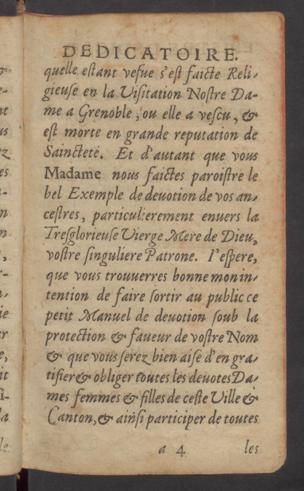 DEDICATOIRE.
quelle estant vefue s'est faicte Reli-
gieuse en la Visitation Nostre Da-
me a Grenoble, ou elle a vescu, &
est morte en grande reputation de
Saincteté. Et d'autant que vous
Madame nous faictes paroistre le
bel Exemple de deuotion de vos an-
cestres, particulierement enuers la
Tresglorieuse Vierge Mere de Dieu,
vostre singuliere Patrone. I'espere,
que vous trouuerres bonne mon in-
tention de faire sortir au public ce
petit Manuel de deuotion soub la
protection & faueur de vostre Nom
& que vous serez bien aise d'en gra-
tifier & obliger toutes les deuotes Da-
mes femmes & filles de ceste Ville &
Canton, & ainsi participer de toutes
a 4 les